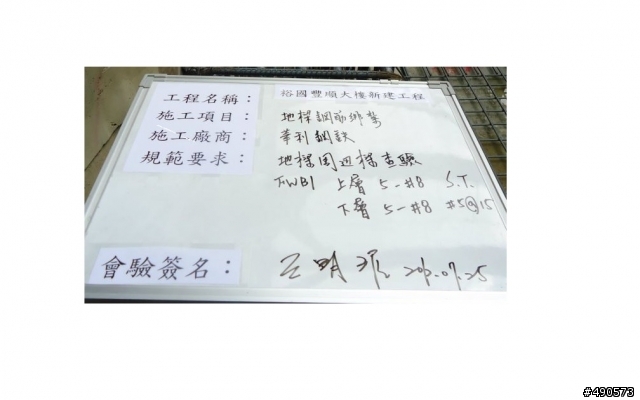 工程名稱： 裕國豐順大樓新建工程
施工項目： 地樑鋼筋綁紮
施工廠商： 華利鋼鉄
規範要求： 地樑周邊樑查驗
FWB1 上層 5-#8 S.T.
下層 5-#8 #5@15
會驗簽名： 王明
#490573